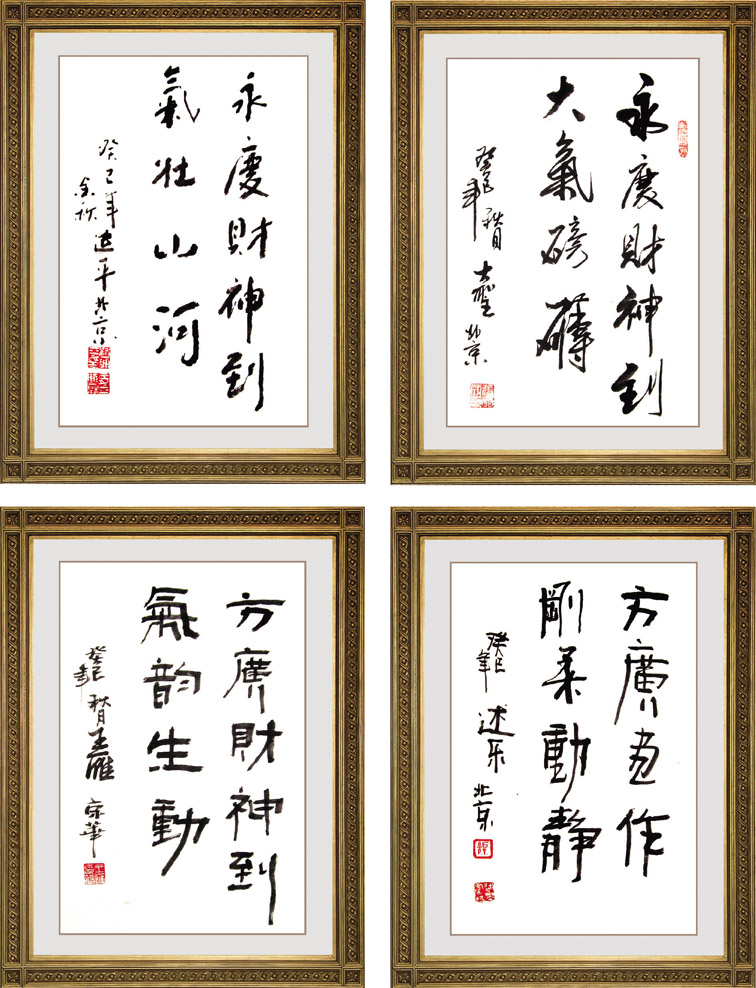 永慶財神到
氣壯山河
癸巳年
金秋
建平於京
永慶財神到
大氣磅礴
癸巳年
秋月
大聖
於京
方廣財神到
氣韵生動
癸巳年
秋月
王雁
京華
方廣畫作
剛柔動靜
癸巳年
述樂
北京